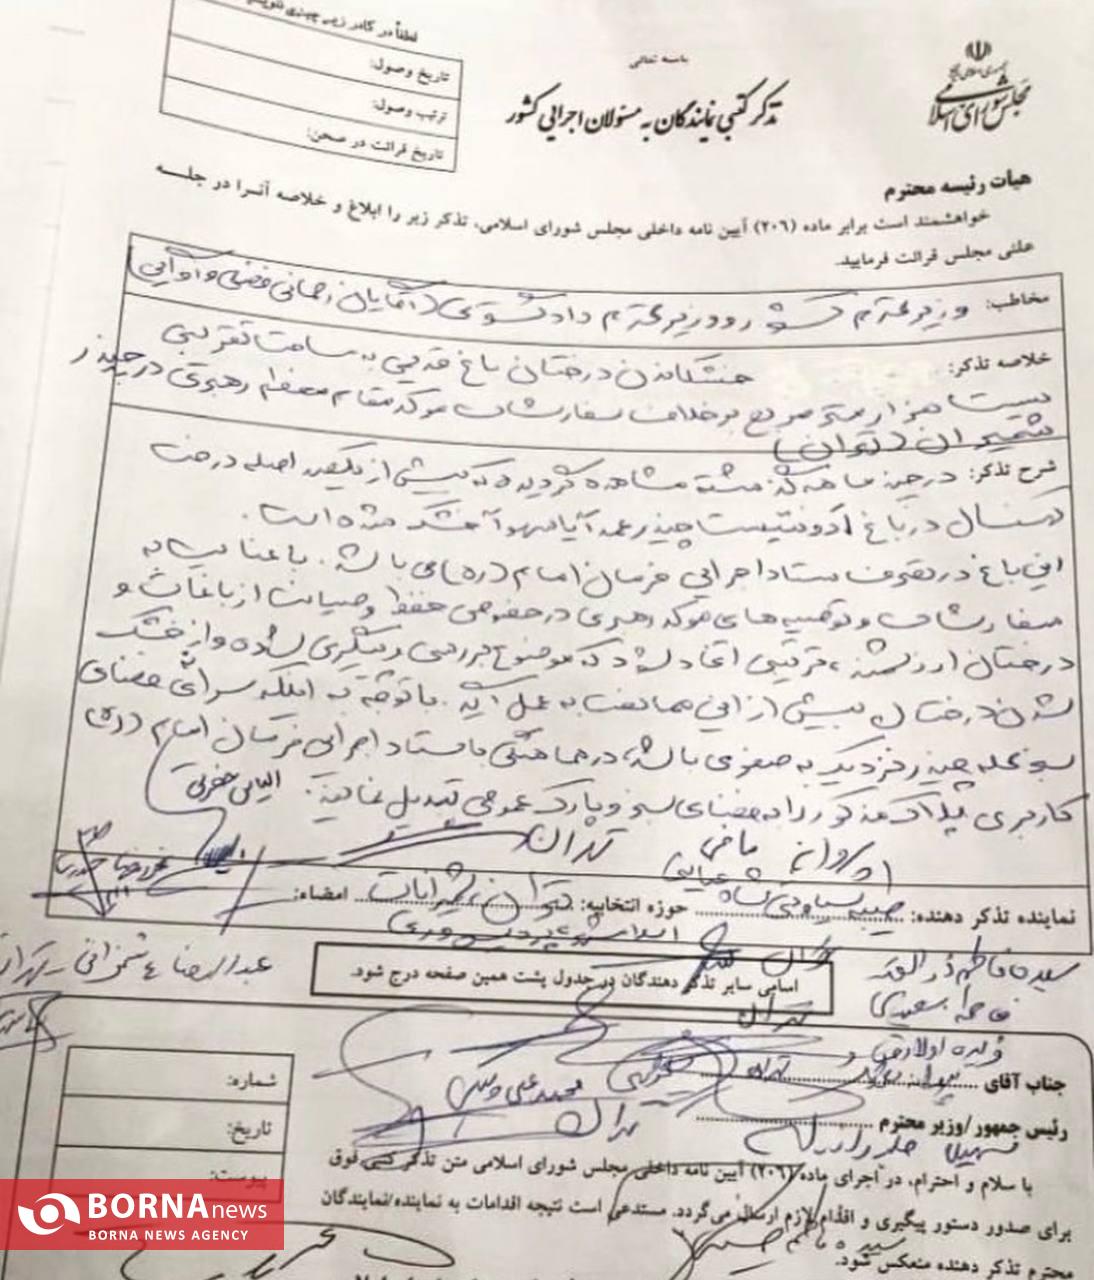 لطفاً در کادر زیر چیزی ننویسید
تاریخ وصول:
ترتیب وصول:
تاریخ قرائت در صحن:
باسمه تعالی
جمهوری اسلامی ایران
مجلس شورای اسلامی
تذکر کتبی نمایندگان به مسئولان اجرایی کشور
هیأت رئیسه محترم
خواهشمند است برابر ماده (۲۰۶) آیین نامه داخلی مجلس شورای اسلامی، تذکر زیر را ابلاغ و خلاصه آنرا در جلسه
علنی مجلس قرائت فرمایید.
مخاطب: وزیر محترم کشور و وزیر محترم دادگستری (آقایان رحمانی فضلی و آوایی)
خلاصه تذکر: خشکاندن درختان باغ قدیمی به مساحت تقریبی
بیست هزار متر مربع برخلاف سفارشات موکد مقام معظم رهبری در چیذر
شمیران (تهران)
شرح تذکر: در چند ماهه گذشته مشاهده گردیده که بیش از یکصد اصله درخت
کهنسال در باغ ادونتیست چیذر عمداً یا سهواً خشک شده است.
این باغ در تصرف ستاد اجرایی فرمان امام (ره) می باشد. با عنایت به
سفارشات و توصیه های موکد رهبری در خصوص حفظ و صیانت از باغات و
درختان ارزشمند، ترتیبی اتخاذ شود که موضوع بررسی و پیگیری شده و از خشک
شدن درختان بیش از این ممانعت به عمل آید. با توجه به اینکه سرانه فضای
سبز محله چیذر نزدیک به صفر می باشد، در هماهنگی با ستاد اجرایی فرمان امام (ره)
کاربری پلاک مذکور را به فضای سبز و پارک عمومی تبدیل نمایند.
الیاس حضرتی
پروانه مافی تهران
نماینده تذکر دهنده: طیبه سیاوشی شاه عنایتی حوزه انتخابیه: تهران، شمیرانات امضاء:
محمدرضا
اسلامشهر پردیس و ری
سیده فاطمه ذوالقدر تهران
عبدالرضا
تهران
اسامی سایر تذکر دهندگان در جدول پشت همین صفحه درج شود.
فاطمه سعیدی تهران
فریده اولادقباد
جناب آقای
تهران
محمدعلی وکیلی
تهران
شماره:
تاریخ:
پیوست:
رئیس جمهور/وزیر محترم
سهیلا جلودارزاده
با سلام و احترام، در اجرای ماده (۲۰۶) آیین نامه داخلی مجلس شورای اسلامی متن تذکر کتبی فوق
برای صدور دستور پیگیری و اقدام لازم ارسال می گردد. مستدعی است نتیجه اقدامات به نماینده/نمایندگان
محترم تذکر دهنده منعکس شود.
BORNA news
BORNA NEWS AGENCY